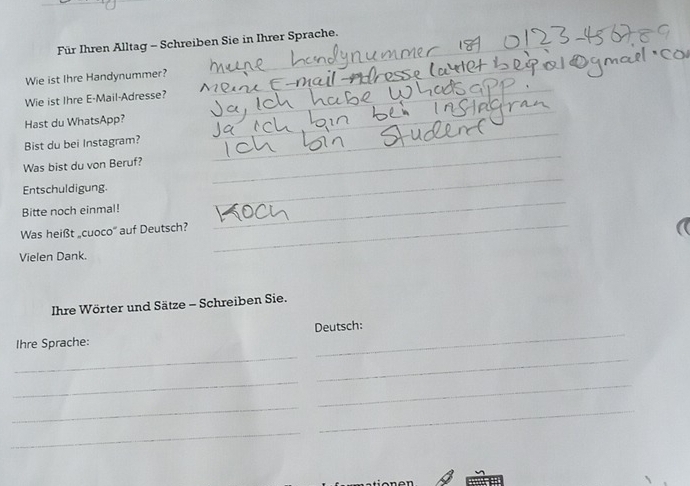 Für Ihren Alltag – Schreiben Sie in Ihrer Sprache.
Wie ist Ihre Handynummer? meine handynummer ist 0123-456789
Wie ist Ihre E-Mail-Adresse? Meine E-mail-Adresse lautet @gmail.com
Hast du WhatsApp? Ja, Ich habe Whatsapp.
Bist du bei Instagram? Ja ich bin bei Instagram
Was bist du von Beruf? Ich bin Student
Entschuldigung.
Bitte noch einmal!
Was heißt „cuoco“ auf Deutsch? Koch
Vielen Dank.
Ihre Wörter und Sätze – Schreiben Sie.
Ihre Sprache: Deutsch: